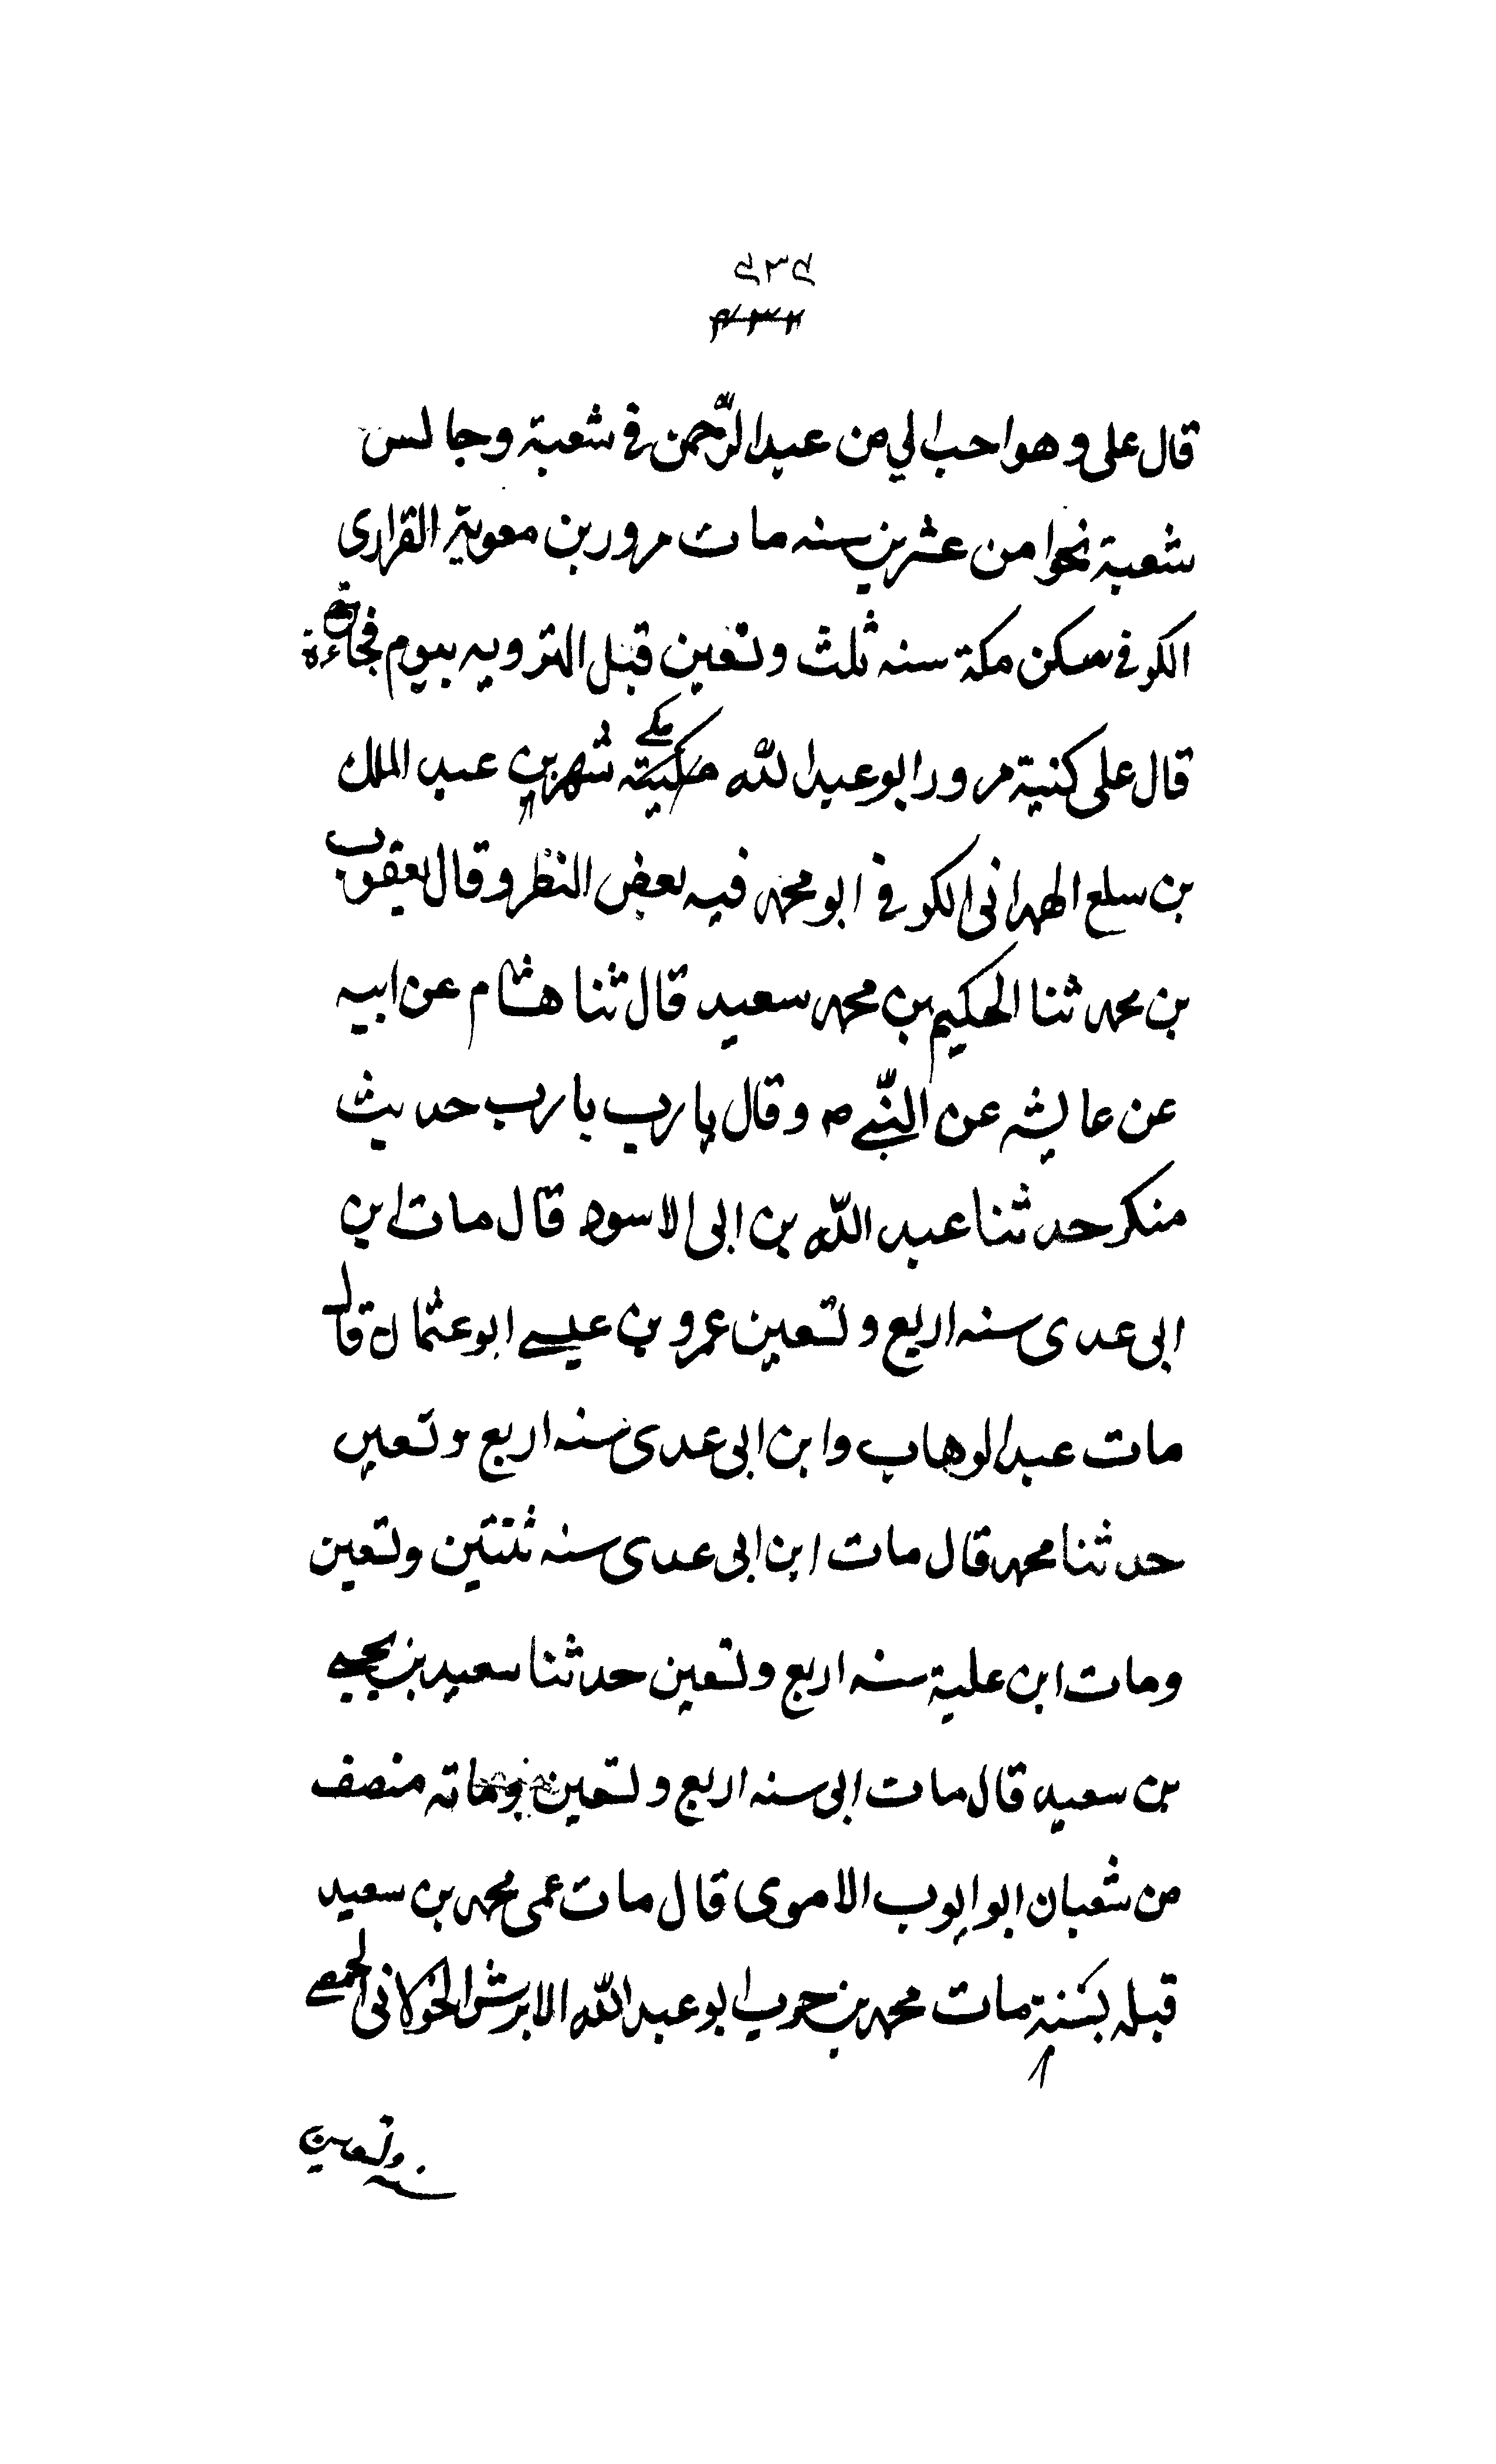 ٩٣٩
قال على وهو احب الي من عبد الرّحمن في شعبة وجالس
شعبة نحوا من عشرين سنه مات مرور بن معوية القرارى
الكوفى سكن مكة سنه ثلث وتسعين قبل التزويه بيوم فجاءة
قال على كنية مرور ابو عبد الله مكے شهر بن عبد الملك
بن سلع الهمدانى الكوفى ابو محمد فيه بعض النظر وقال يعقوب
بن محمد ثنا الحكيم بن محمد سعيد قال ثنا هشام عن ابيه
عن عايشه عن النّبےص وقال يا رب يا رب حديث
منكر حدثنا عبد الله بن ابى الاسود قال مات ابن
ابى عدى سنه اربع وتسعين عمرو بن عيسے ابو عثمان قال
مات عبد الوهاب وابن ابى عدى سنه اربع وتسعين
حدثنا محمد قال مات ابن ابى عدى سنه ثنتين وتسعين
ومات ابن علية سنه اربع وتسعين حدثنا سعيد بن يحيے
بن سعيد قال مات ابى سنه اربع وتسعين وماته منصف
من شعبان ابو ايوب الاموى قال مات عمى محمد بن سعيد
قبله بسنة مات محمد بن حرب ابو عبد الله الابرش الخولانى الحمصے
سنه وتسعين